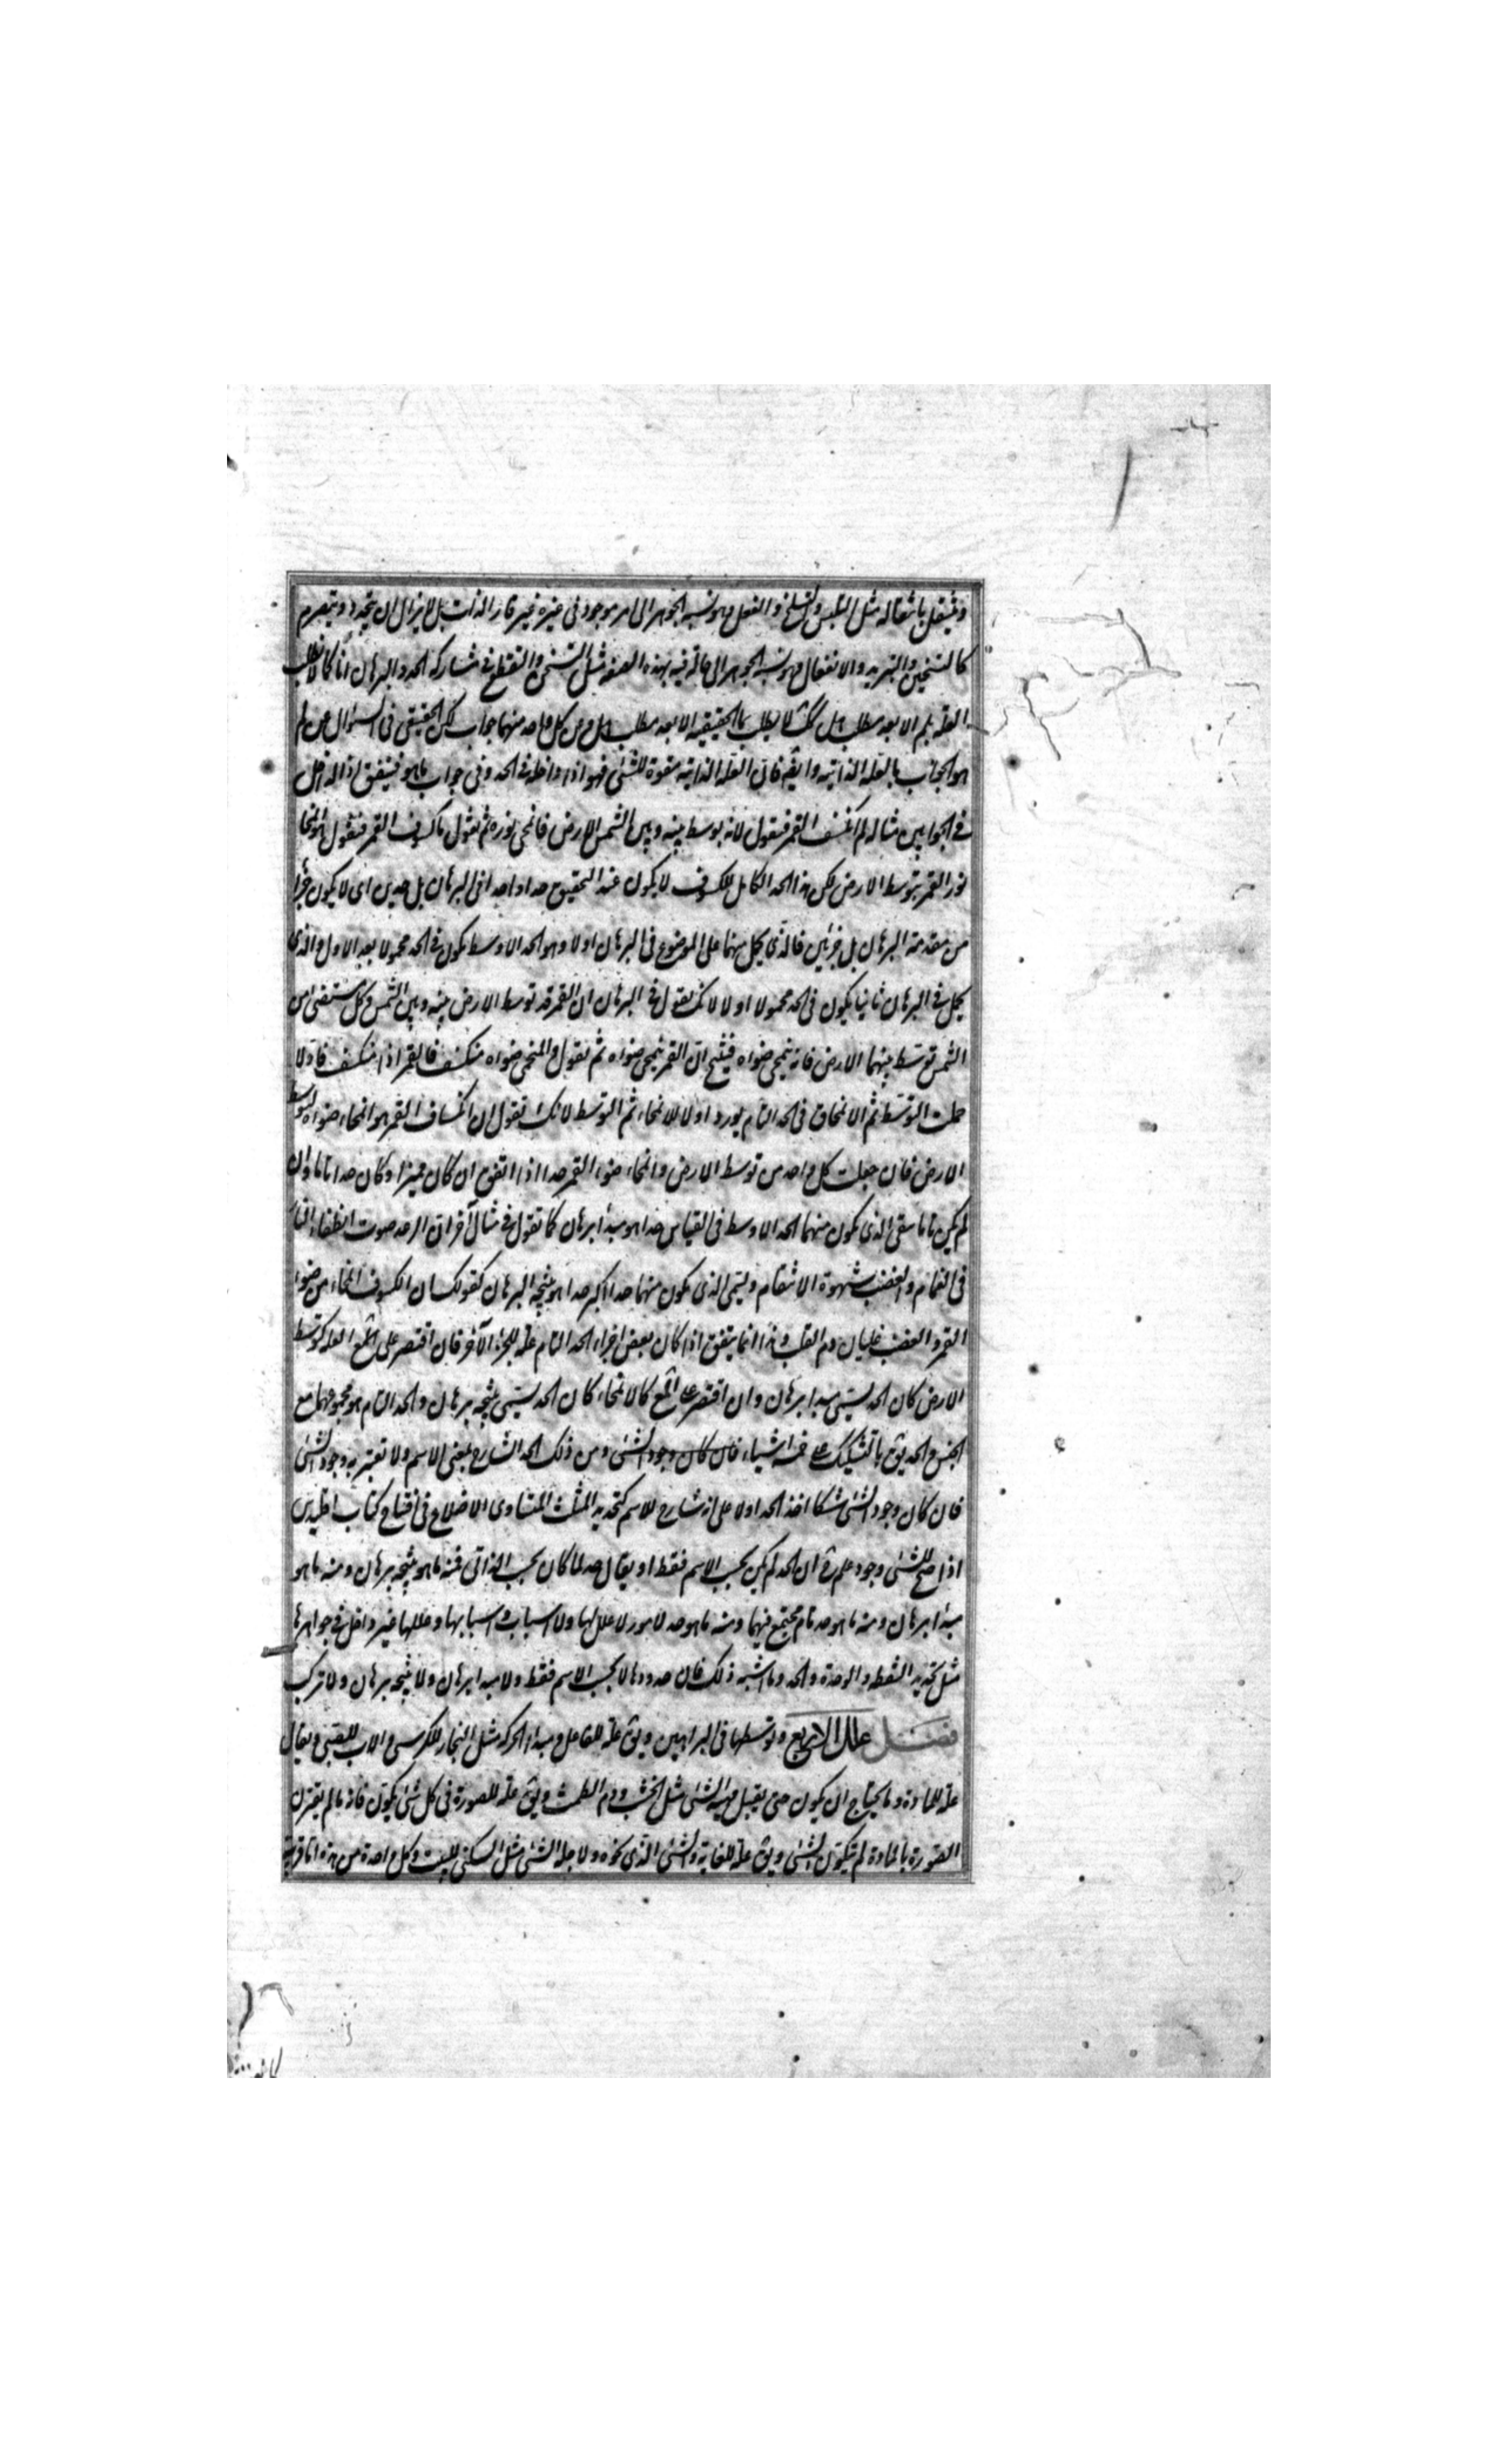 وينتقل بانتقاله مثل التلبس والتسلخ والفعل وهو نسبة الجوهر الى امر موجود فى غيره غير قار الذات بل لا يزال ان يتجدد ويتصرم
كالتسخين والتبريد والانفعال وهو نسبة الجوهر الى حالة فيه بهذه الصفة مثل التسخن والتقطع فى مشاركة الحد والبرهان انا كما لا نطلب
العلة بلم الا بعد مطلب هل كذلك لا نطلب ما الحقيقية الا بعد مطلب هل وعن كل واحد منهما جواب لكن الحقيقى فى السؤال عن لم
هو الجواب بالعلة الذاتية وايضا فان العلة الذاتية مقومة للشئ فهو اذا داخلة فى الحد وفى جواب ما هو فيتفق اذا الداخل
فى الجوابين مثاله لم انكسف القمر فنقول لانه توسط بينه وبين الشمس الارض فانمحى نوره ثم نقول ما كسوف القمر فنقول هو انمحا
نور القمر بتوسط الارض لكن هذا الحد الكامل للكسوف لا يكون عند التحقيق حدا واحدا فى البرهان بل حدين اى لا يكون جزأ
من مقدمة البرهان بل جزئين فالذى يحمل منهما على الموضوع فى البرهان اولا وهو الحد الاوسط يكون فى الحد محمولا بعد الاول والذى
يحمل فى البرهان ثانيا يكون فى الحد محمولا اولا لانك تقول فى البرهان ان القمر قد توسط الارض بينه وبين الشمس وكل مستضئ من
الشمس توسط بينهما الارض فانه ينمحى ضوءه فينتج ان القمر ينمحى ضوءه ثم نقول والمنمحى ضوءه منكسف فالقمر اذا منكسف فاولا
حملت التوسط ثم الانمحاق فى الحد التام يورد اولا الانمحاء ثم التوسط لانك تقول ان انكساف القمر هو انمحاء ضوءه لتوسط
الارض فان جعلت كل واحد من توسط الارض وانمحاء ضوء القمر حدا اذا اتفق ان كان مميزا وكان حدا تاما وان
لم يكن تاما سمى الذى يكون منهما الحد الاوسط فى القياس حدا هو مبدأ برهان كما تقول فى مثال آخر ان الرعد صوت انطفاء النار
فى الغمام والغضب شهوة الانتقام ويسمى الذى يكون منهما حدا اكبر حدا هو نتيجة البرهان كقولك ان الكسوف انمحاء من ضوء
القمر والغضب غليان دم القلب وهذا انما يتفق اذا كان بعض اجزاء الحد التام علة للجزء الآخر فان اقتصر على العلة كتوسط
الارض كان الحد يسمى مبدأ برهان وان اقتصر على كالانمحاء كان الحد يسمى نتيجة برهان والحد التام هو مجموعهما مع
الجنس والحد يق بالتشكيك على خمسة اشياء فان كان وجود الشئ ومن ذلك الحد الشارح لمعنى الاسم ولا تعتبر به وجود الشئ
فان كان وجود الشئ مشكا اخذ الحد اولا على انه شارح للاسم كتحديد المثلث المتساوى الاضلاع فى افتتاح كتاب اقليدس
اذا صح للشئ وجود علم ح ان الحد لم يكن بحسب الاسم فقط او يقال حد لما كان بحسب الذات فمنه ما هو نتيجة برهان ومنه ما هو
مبدأ برهان ومنه ما هو حد تام مجتمع فيهما ومنه ما هو حد لامور لا علل لها ولا اسباب و اسبابها وعللها غير داخل فى جواهرها
مثل تحديد النقطة والوحدة والحد وما اشبه ذلك فان حدودها لا بحسب الاسم فقط ولا مبدأ برهان ولا نتيجة برهان ولا مركب
فصل علل الاربع وتوسطها فى البراهين ويق علة للفاعل ومبدا الحركة مثل النجار للكرسى والاب للصبى ويقال
علة للمادة وما يحتاج ان يكون حتى يقبل مهية الشئ مثل الخشب ودم الطمث ويق علة للصورة فى كل شئ يكون فانه ما لم يقترن
الصورة بالمادة لم يتكون الشئ ويق علة للغاية والشئ الذى نحوه ولاجله الشئ مثل السكنى للبيت وكل واحدة من هذه اما قريبة